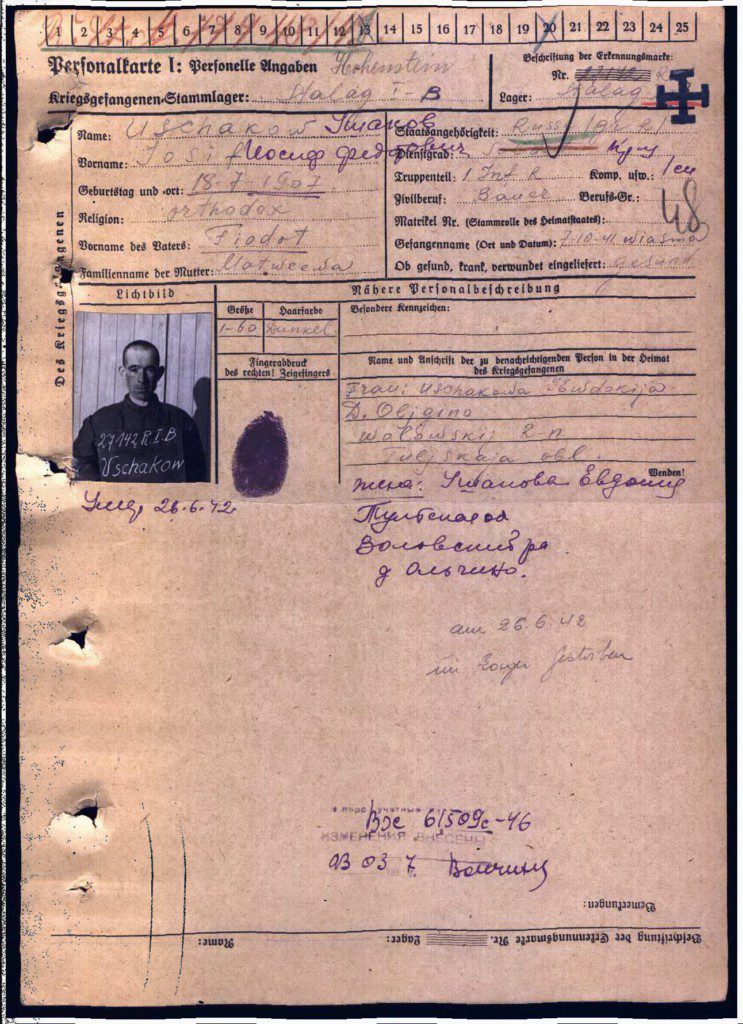 1 2 3 4 5 6 7 8 9 10 11 12 13 14 15 16 17 18 19 20 21 22 23 24 25
Personalkarte I: Personelle Angaben Hohenstein
Kriegsgefangenen-Stammlager: Stalag I-B
Beschriftung der Erkennungsmarke:
Nr.
Lager: Stalag
Des Kriegsgefangenen
Name: Uschakow Ушаков
Vorname: Iosif Иосиф Федотович
Geburtstag und -ort: 18.7.1907
Religion: orthodox
Vorname des Vaters: Fiodot
Familienname der Mutter: Matweewa
Staatsangehörigkeit:
Dienstgrad:
Truppenteil: 1 Inf R Komp. usw.:
Zivilberuf: Bauer Berufs-Gr.:
Matrikel Nr. (Stammrolle des Heimatstaates):
Gefangennahme (Ort und Datum): 7-10-41 Wiasma
Ob gesund, krank, verwundet eingeliefert: gesund
48
Lichtbild
Nähere Personalbeschreibung
Größe
Haarfarbe
1-60
Dunkel
Fingerabdruck
des rechten! Zeigefingers
Besondere Kennzeichen:
Name und Anschrift der zu benachrichtigenden Person in der Heimat
des Kriegsgefangenen
Frau: Uschakowa Ewdokija
D. Oljgino
Wolowski R-n
Tuljskaia obl.
Wenden!
27142 R.I.B
Uschakow
26.6.42
жена: Ушакова Евдокия
Тульская
Воловский р
д Ольгино.
am 26.6.42
im Lager gestorben
ИЗМЕНЕНИЯ ВНЕСЕНЫ
Bemerkungen:
Beschriftung der Erkennungsmarke Nr. Lager: Name: